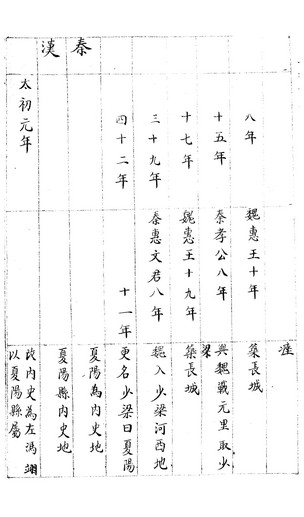 涯
八年
魏惠王十年
築長城
十五年
秦孝公八年
與魏戰元里取少
梁
十七年
魏惠王十九年
築長城
三十九年
秦惠文君八年
魏入少梁河西地
四十二年
十一年
更名少梁曰夏陽
秦
夏陽為內史地
漢
夏陽縣內史地
太初元年
改內史為左馮翊
以夏陽縣屬